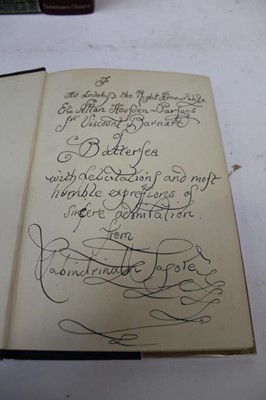 To
His Ludship the Right Honourable
1st Viscount Barnard
of
Battersea
with felicitations and most
humble expressions of
sincere admiration
from
Rabindrinath Tagore